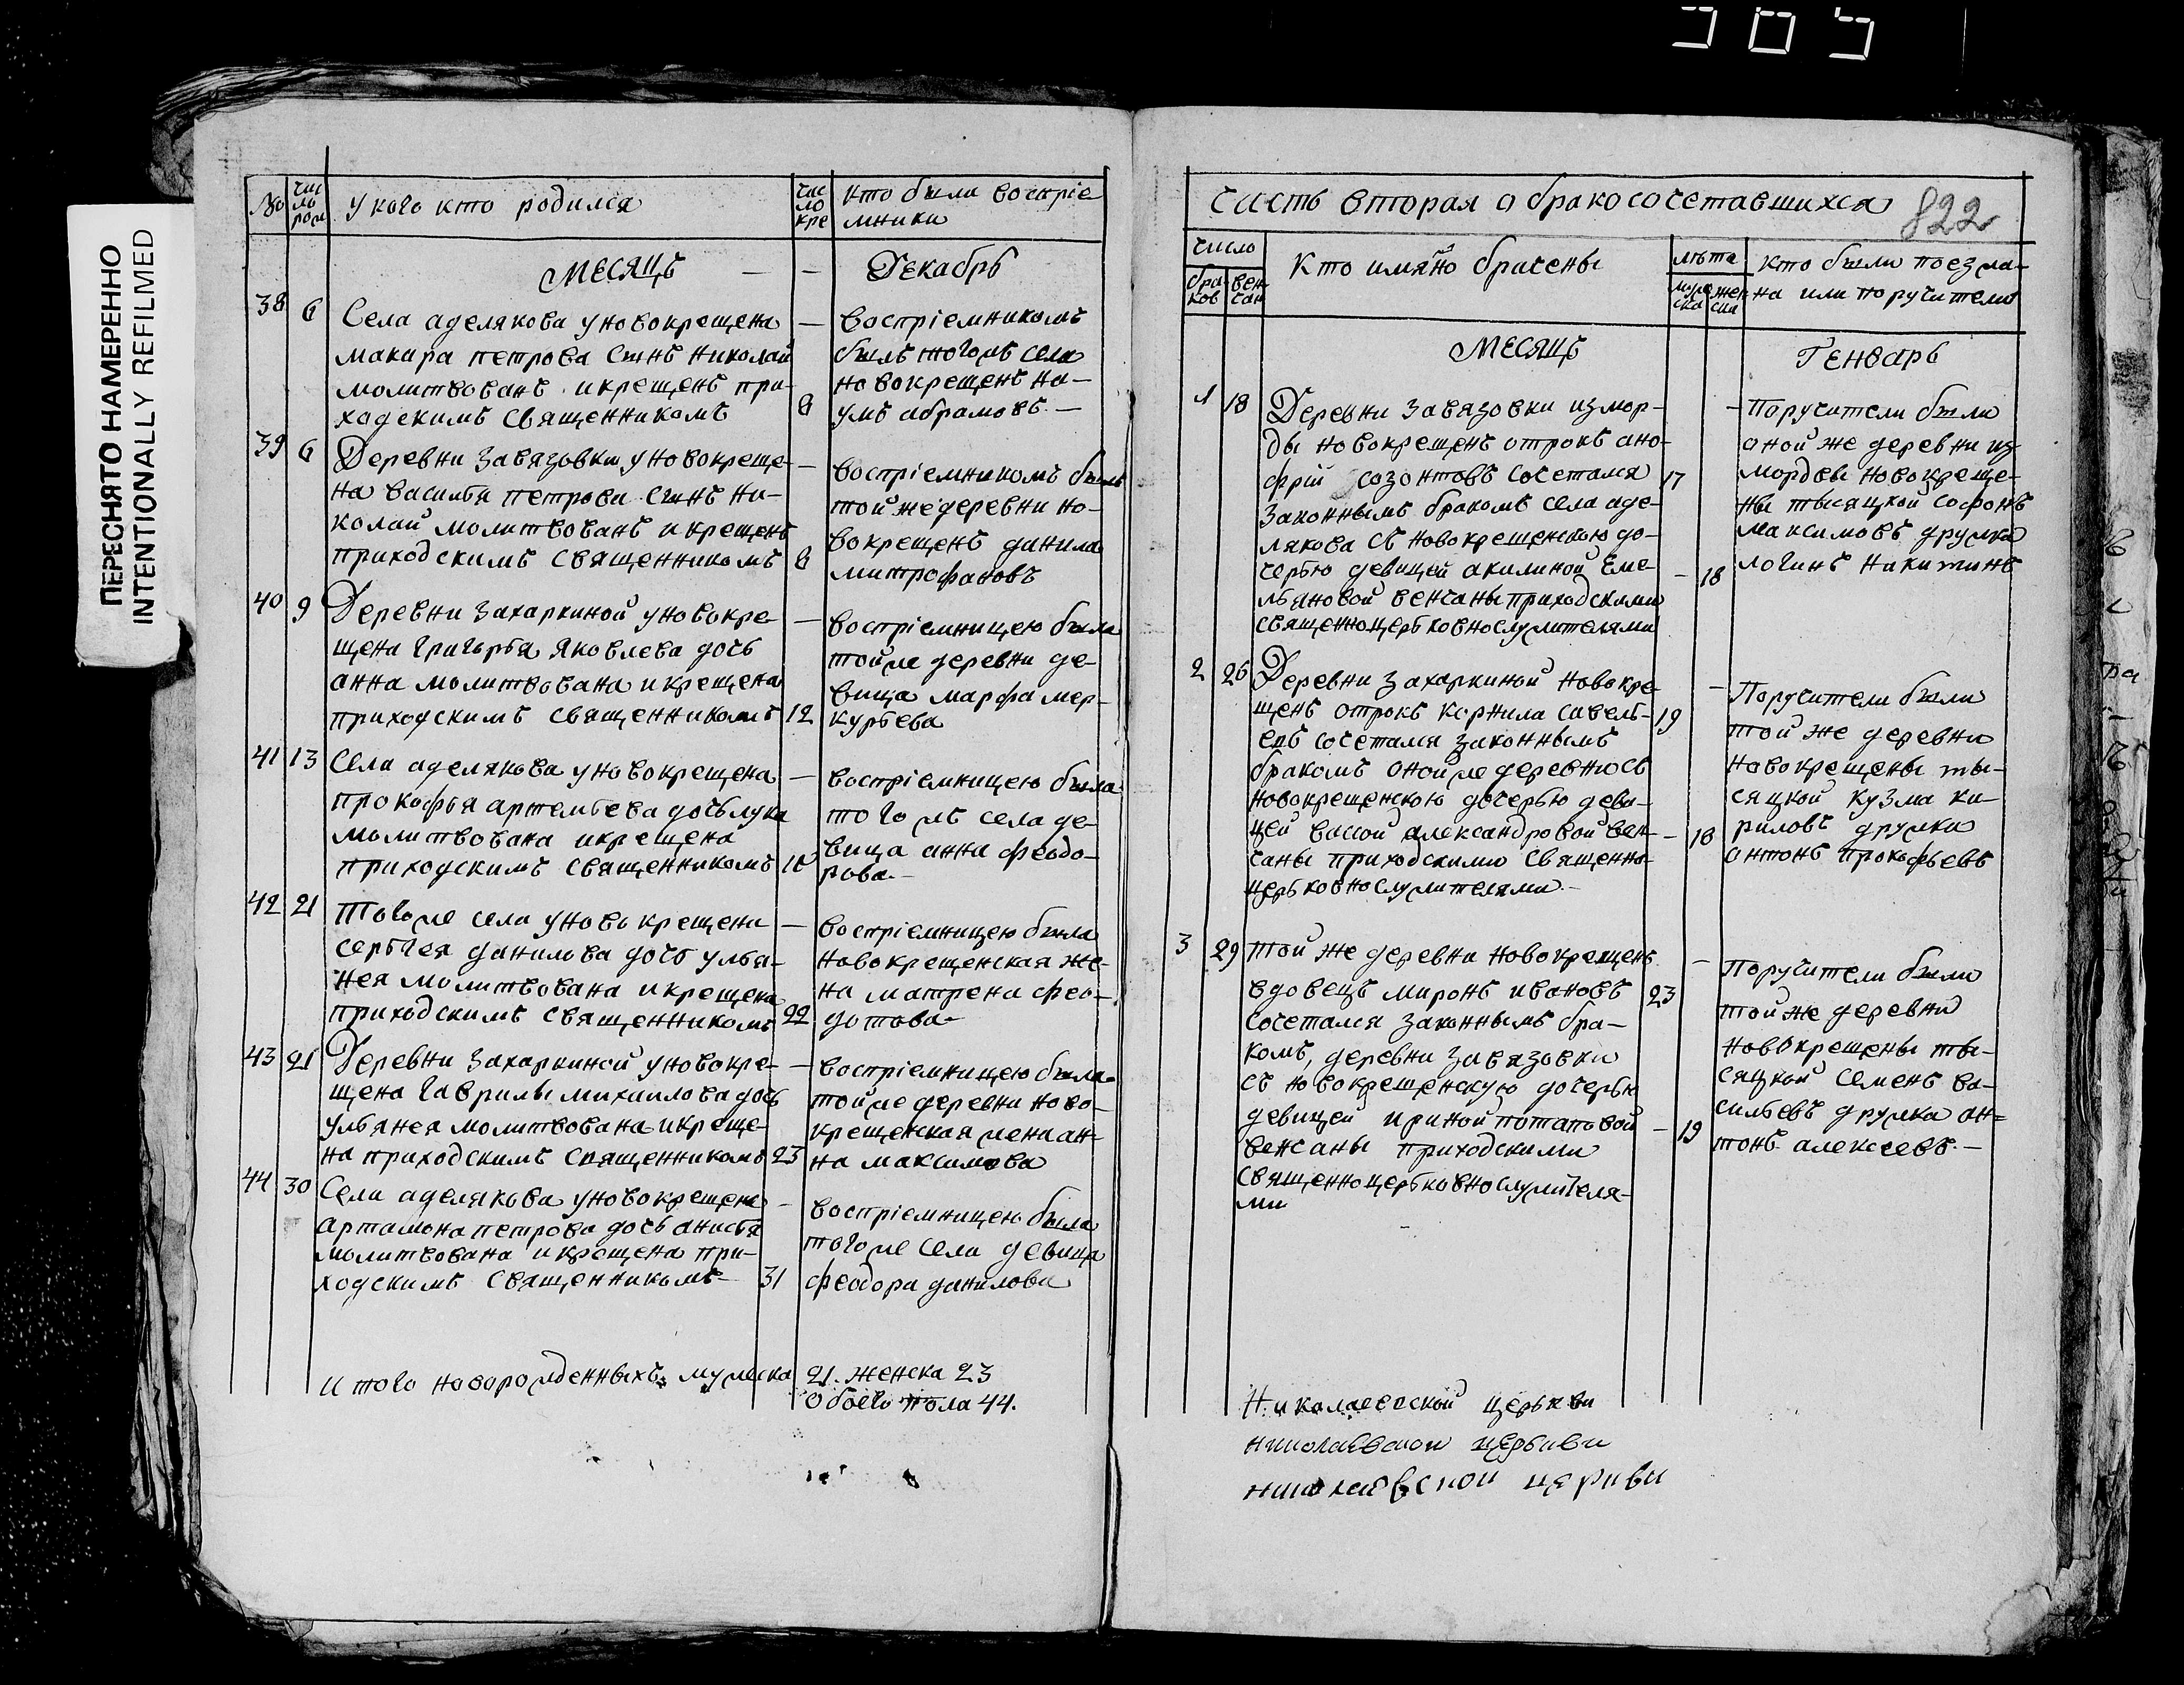 ПЕРЕСНЯТО НАМЕРЕННО
INTENTIONALLY REFILMED
№
чис
ло
рож
У кого кто родился
чис
ло
кре
кто были востріе
мники
МЕСЯЦЪ — — Декабрь
38 6 Села аделякова у новокрещена
макара петрова сынъ николай
молитвованъ и крещенъ при-
ходскимъ священникомъ 8
— воспріемникомъ
былъ тогожъ села
новокрещенъ на-
умъ абрамовъ. —
39 6 Деревни Завязовки у новокреще-
на василья петрова сынъ ни-
колай молитвованъ и крещенъ
приходскимъ священникомъ 8
— воспріемникомъ былъ
той же деревни но-
вокрещенъ данила
митрофановъ
40 9 Деревни Захаркиной у новокре-
щена григорья яковлева дочь
анна молитвована и крещена
приходскимъ священникомъ 12
— воспріемницею была
тойже деревни де-
вица марфа мер-
курьева
41 13 Села аделякова у новокрещена
прокофья артемьева дочь лука
молитвована и крещена
приходскимъ священникомъ
— воспріемницею была
того жъ села де-
вица анна феодо-
рова.-
42 21 Тогоже села у новокрещена
сергея данилова дочь улья-
нея молитвована и крещена
приходскимъ священникомъ 22
— воспріемницею была
новокрещенская же-
на матрена фео-
дотова-
43 21 Деревни Захаркиной у новокре-
щена гаврилы михаилова дочь
ульянея молитвована и креще-
на приходскимъ священникомъ 23
— воспріемницею была
тойже деревни ново-
крещенская жена ан-
на максимова
44 30 Села аделякова у новокрещена
артамона петрова дочь анисья
молитвована и крещена при-
ходскимъ священникомъ- 31
- воспріемницею была
тогоже села девица
феодора данилова
Итого новорожденныхъ мужеска 21. женска 23
Обоего пола 44.
Часть вторая о бракосочетавшихся 822
число
бра-
ков
вен-
чан
Кто имяно брачены
лѣта
муже
ска
жен
ска
кто были поезжа-
на или поручители
МЕСЯЦЪ Генварь
1 18 Деревни Завязовки из мор-
ды новокрещенъ отрокъ ано-
фрій созонтовъ сочетался 17
законнымъ бракомъ села аде-
лякова съ новокрещенскою до-
черью девицей акилиной Еме- — 18
льяновой венчаны приходскими
священноцерьковнослужителями
— Поручители были
оной же деревни из
мордвы новокреще-
ны тысяцкой софонъ
максимовъ дружка
логинъ никитинъ
2 26 Деревни Захаркиной новокре-
щенъ отрокъ корнила савель- 19
евъ сочетался законнымъ
бракомъ онойже деревни съ
новокрещенскою дочерью деви-
цей васой александровой вен- — 18
чаны приходскими священно-
церьковнослужителями.-
— Поручители были
той же деревни
новокрещены ты-
сяцкой кузма ки-
риловъ дружка
антонъ прокофьевъ
3 29 той же деревни новокрещенъ
вдовецъ миронъ ивановъ 23
сочетался законнымъ бра-
комъ, деревни завязовки
съ новокрещенскую дочерью
девицей ириной потаповой — 19
венчаны приходскими
священноцерьковнослужителя-
ми
— Поручители были
той же деревни
новокрещены ты-
сяцкой семенъ ва-
сильевъ дружка ан-
тонъ алексеевъ.—
Николаевской церькви
николаевской церькви
николаевской церкви